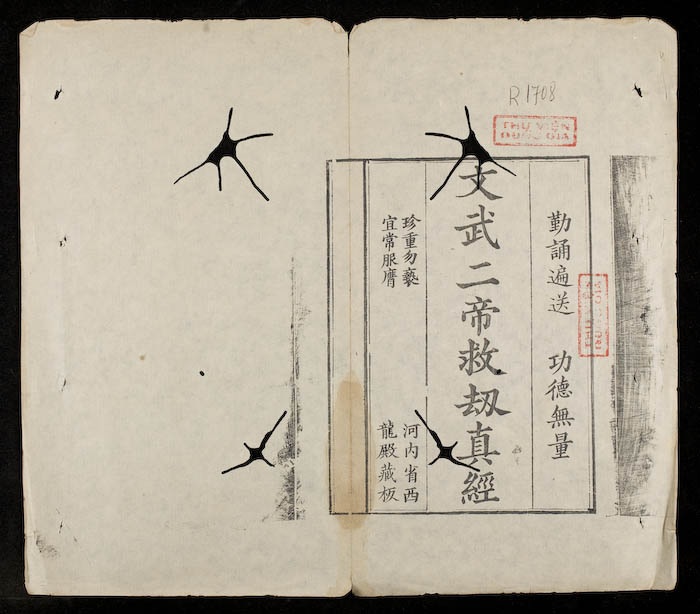 R1708
THƯ VIỆN
QUỐC GIA
勤誦遍送 功德無量
文武二帝救刼真經
珍重勿褻
宜常服膺
河内省西
龍殿藏板